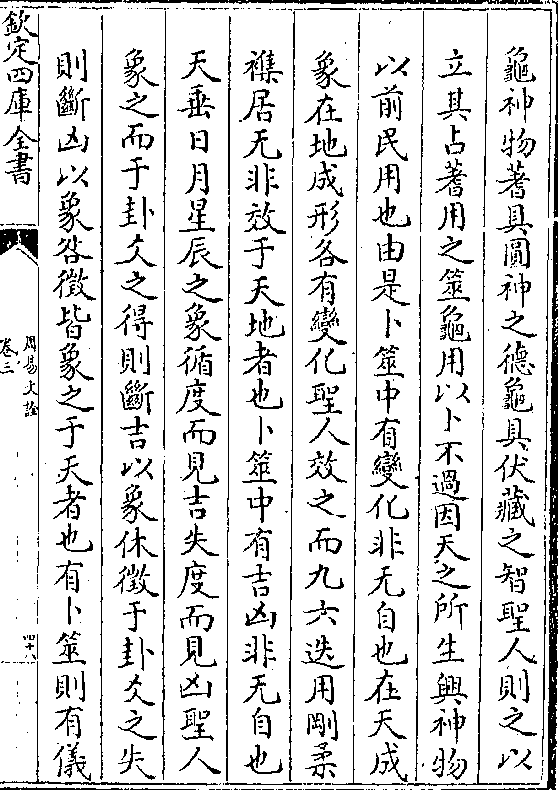 龜神物蓍具圓神之德龜具伏藏之智聖人則之以
立其占蓍用之筮龜用以卜不過因天之所生興神物
以前民用也由是卜筮中有變化非无自也在天成
象在地成形各有變化聖人效之而九六迭用剛柔
襍居无非效于天地者也卜筮中有吉凶非无自也
天垂日月星辰之象循度而見吉失度而見凶聖人
象之而于卦爻之得則斷吉以象休徵于卦爻之失
則斷凶以象咎徵皆象之于天者也有卜筮則有儀
欽定四庫全書
周易文詮
卷三
四十八